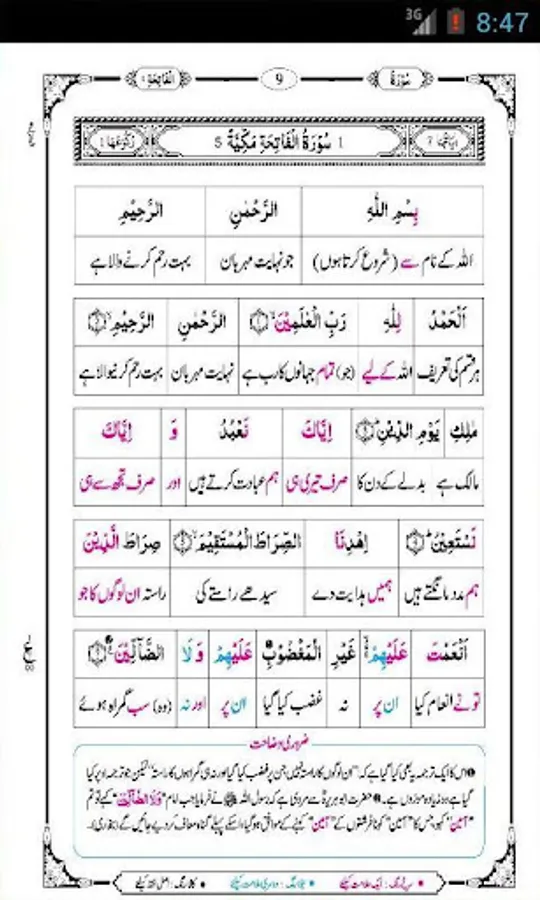 3G 8:47
سُوْرَةُ 9 اَلْفَاتِحَةِ ١
اٰيَاتُهَا 7 1 سُوْرَةُ الْفَاتِحَةِ مَكِّيَّةٌ 5 رُكُوْعُهَا 1
بِسْمِ اللّٰهِ الرَّحْمٰنِ الرَّحِيْمِ
اللہ کے نام سے (شروع کرتا ہوں) جو نہایت مہربان بہت رحم کرنے والا ہے
اَلْحَمْدُ لِلّٰهِ رَبِّ الْعٰلَمِيْنَ الرَّحْمٰنِ الرَّحِيْمِ
ہر قسم کی تعریف اللہ کے لیے (جو) تمام جہانوں کا رب ہے نہایت مہربان بہت رحم کرنیوالا ہے
مٰلِكِ يَوْمِ الدِّيْنِ اِيَّاكَ نَعْبُدُ وَ اِيَّاكَ
مالک ہے بدلے کے دن کا صرف تیری ہی ہم عبادت کرتے ہیں اور صرف تجھ سے ہی
نَسْتَعِيْنُ اِهْدِنَا الصِّرَاطَ الْمُسْتَقِيْمَ صِرَاطَ الَّذِيْنَ
ہم مدد مانگتے ہیں ہمیں ہدایت دے سیدھے راستے کی راستہ ان لوگوں کا جو
اَنْعَمْتَ عَلَيْهِمْ غَيْرِ الْمَغْضُوْبِ عَلَيْهِمْ وَلَا الضَّآلِّيْنَ
تو نے انعام کیا ان پر نہ غضب کیا گیا ان پر اور نہ (وہ) سب گمراہ ہوئے
ضروری وضاحت
اس کا ایک ترجمہ یہ بھی کیا گیا ہے کہ "ان لوگوں کا راستہ نہیں جن پر غضب کیا گیا اور نہ ہی گمراہوں کا راستہ" لیکن جو ترجمہ اوپر کیا
گیا ہے وہ زیادہ موزوں ہے۔ حضرت ابوہریرہ سے مروی ہے کہ رسول اللہ ﷺ نے فرمایا جب امام "وَلَا الضَّآلِّيْنَ" کہے تو تم
"آمین" کہو، جس کا "آمین" کہنا فرشتوں کے "آمین" کہنے کے موافق ہو گیا اسکے پہلے گناہ معاف کر دیے جائیں گے (بخاری)۔